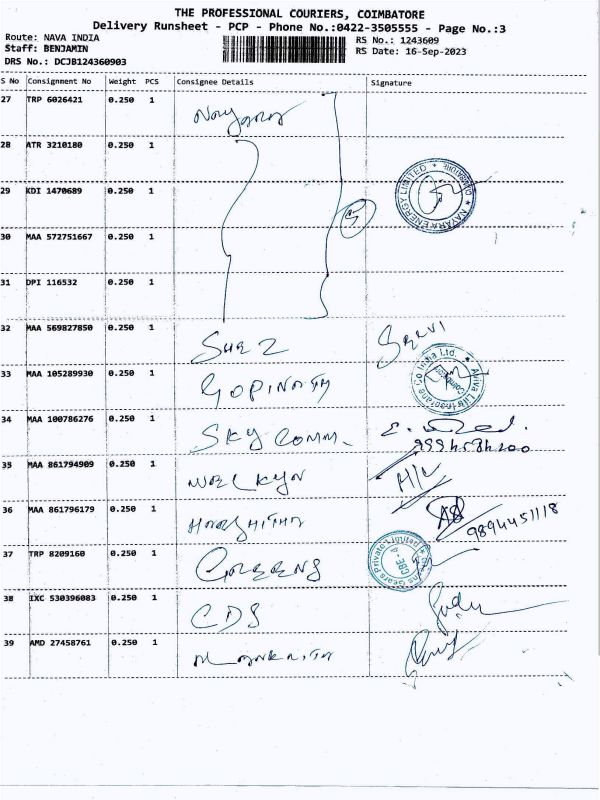 THE PROFESSIONAL COURIERS, COIMBATORE
Delivery Runsheet - PCP - Phone No.:0422-3505555 - Page No.:3
Route: NAVA INDIA
RS No.: 1243609
Staff: BENJAMIN
RS Date: 16-Sep-2023
DRS No.: DCJB124360903
S No Consignment No Weight PCS Consignee Details Signature
27 TRP 6026421 0.250 1 Nayara
28 ATR 3210180 0.250 1
NAYARA ENERGY LIMITED
29 KDI 1470689 0.250 1
5
30 MAA 572751667 0.250 1
31 DPI 116532 0.250 1
32 MAA 569827850 0.250 1
33 MAA 105289930 0.250 1 GOPINATH
Aviva Life Insurance Co India Ltd.
34 MAA 100786276 0.250 1 SKY COMM.
35 MAA 861794909 0.250 1
36 MAA 861796179 0.250 1 9894451118
37 TRP 8209160 0.250 1 GREENS
Private Limited
CBE
38 IXC 530396083 0.250 1 CDS
39 AMD 27458761 0.250 1